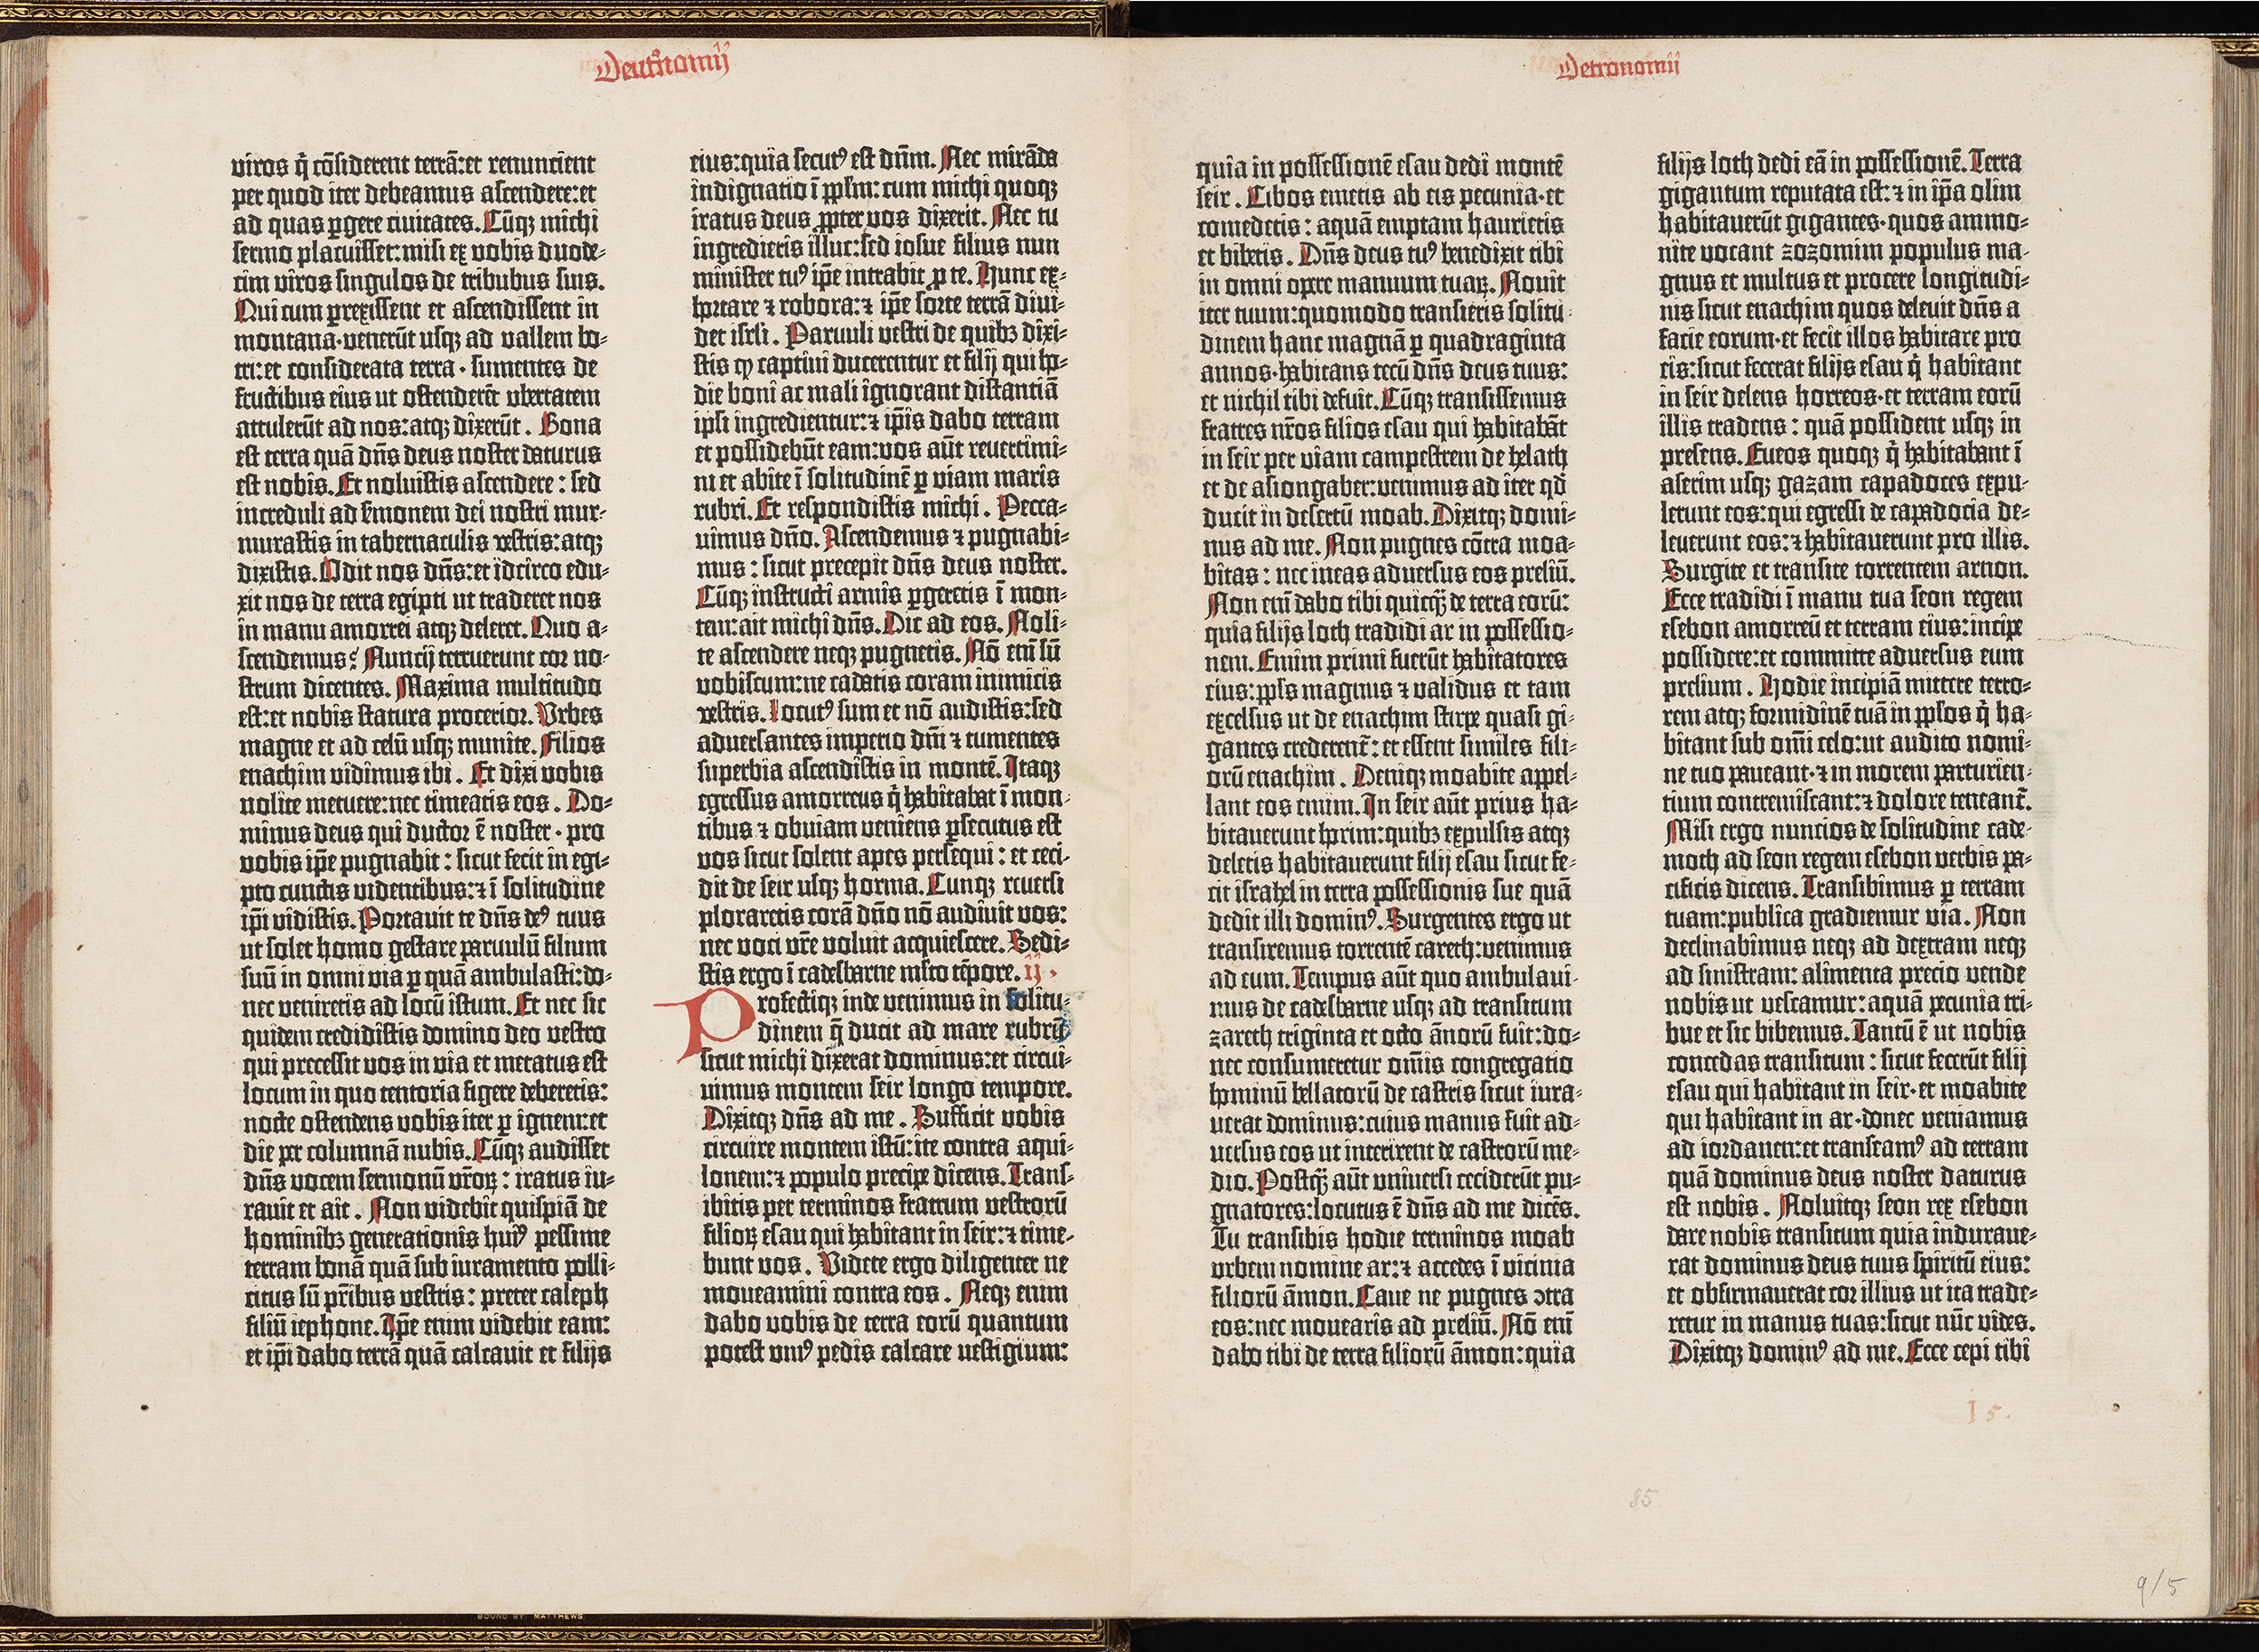 Deutͦnomij
viros q̇ cōsiderent terrā:et renuncient
per quod iter debeamus ascendere:et
ad quas ꝑgere ciuitates. Cūqꝫ michi
sermo placuisset: misi ex vobis duode-
cim viros singulos de tribubus suis.
Qui cum ꝑrexissent et ascendissent in
montana·venerūt usqꝫ ad vallem bo-
tri:et considerata terra · sumentes de
fructibus eius ut ostenderēt ubertatem
attulerūt ad nos:atqꝫ dixerūt. Bona
est terra quā dn̄s deus noster daturus
est nobis. Et noluistis ascendere : sed
increduli ad s̄monem dei nostri mur-
murastis in tabernaculis vestris:atqꝫ
dixistis. Odit nos dn̄s:et idcirco edu-
xit nos de terra egipti ut traderet nos
in manu amorrei atqꝫ deleret. Quo a-
scendemus? Nuncij terruerunt cor no-
strum dicentes. Maxima multitudo
est:et nobis statura procerior. Urbes
magne et ad celū usqꝫ munite. Filios
enachim vidimus ibi. Et dixi vobis
nolite metuere:nec timeatis eos. Do-
minus deus qui ductor ē noster · pro
vobis ip̄e pugnabit : sicut fecit in egi-
pto cunctis videntibus:⁊ ī solitudine
ip̄i vidistis. Portauit te dn̄s deꝰ tuus
ut solet homo gestare paruulū filium
suū in omni via ꝑ quā ambulasti:do-
nec veniretis ad locū istum. Et nec sic
quidem credidistis domino deo vestro
qui precessit vos in via et metatus est
locum in quo tentoria figere deberetis:
nocte ostendens vobis iter ꝑ ignem:et
die per columnā nubis. Cūqꝫ audisset
dn̄s vocem sermonū vr̄oꝝ : iratus iu-
rauit et ait. Non videbit quispiā de
hominibꝫ generationis huiꝰ pessime
terram bonā quā sub iuramento polli-
citus sū pr̄ibus vestris: preter caleph
filiū iephone. Ip̄e enim videbit eam:
et ip̄i dabo terrā quā calcauit et filijs
eius:quia secutꝰ est dn̄m. Nec mirāda
indignatio ī pp̄lm: cum michi quoqꝫ
iratus deus ꝓpter vos dixerit. Nec tu
ingredieris illuc:sed iosue filius nun
minister tuꝰ ip̄e intrabit ꝓ te. Hunc ex-
hortare ⁊ robora:⁊ ip̄e sorte terrā diui-
det isrl̄i. Paruuli vestri de quibꝫ dixi-
stis ꝙ captiui ducerentur et filij qui ho-
die boni ac mali ignorant distantiā
ipsi ingredientur:⁊ ip̄is dabo terram
et possidebūt eam:vos aūt reuertimi-
ni et abite ī solitudinē ꝑ viam maris
rubri. Et respondistis michi. Pecca-
uimus dn̄o. Ascendemus ⁊ pugnabi-
mus : sicut precepit dn̄s deus noster.
Cūqꝫ instructi armis ꝑgeretis ī mon-
tem:ait michi dn̄s. Dic ad eos. Noli-
te ascendere neqꝫ pugnetis. Nō enī sū
vobiscum:ne cadatis coram inimicis
vestris. Locutꝰ sum et nō audistis:sed
aduersantes imperio dn̄i ⁊ tumentes
superbia ascendistis in montē. Itaqꝫ
egressus amorreus q̇ habitabat ī mon-
tibus ⁊ obuiam veniens ꝑsecutus est
vos sicut solent apes persequi : et ceci-
dit de seir usqꝫ horma. Cunqꝫ reuersi
ploraretis corā dn̄o nō audiuit vos:
nec voci vr̄e voluit acquiescere. Sedi-
stis ergo ī cadesbarne ml̄to tēpore. ij.
Profectiqꝫ inde venimus in solitu-
dinem q̄ ducit ad mare rubrū
sicut michi dixerat dominus:et circui-
uimus montem seir longo tempore.
Dixitqꝫ dn̄s ad me. Sufficit vobis
circuire montem istū:ite contra aqui-
lonem:⁊ populo precipe dicens. Trans-
ibitis per terminos fratrum vestrorū
filioꝝ esau qui habitant in seir:⁊ time-
bunt vos. Videte ergo diligenter ne
moueamini contra eos. Neqꝫ enim
dabo vobis de terra eorū quantum
potest uniꝰ pedis calcare vestigium:
Detronomij
quia in possessionē esau dedi montē
seir. Cibos emetis ab eis pecunia·et
comedetis : aquā emptam haurietis
et bibetis. Dn̄s deus tuꝰ benedixit tibi
in omni opere manuum tuaꝝ. Nouit
iter tuum:quomodo transieris solitu-
dinem hanc magnā ꝑ quadraginta
annos·habitans tecū dn̄s deus tuus:
et nichil tibi defuit. Cūqꝫ transissemus
fratres nr̄os filios esau qui habitabāt
in seir per viam campestrem de helath
et de asiongaber:venimus ad iter qd̄
ducit in desertū moab. Dixitqꝫ domi-
nus ad me. Non pugnes cōtra moa-
bitas : nec ineas aduersus eos preliū.
Non enī dabo tibi quicqꝫ̄ de terra eorū:
quia filijs loth tradidi ar in possessio-
nem. Emim primi fuerūt habitatores
eius:ppl̄s magnus ⁊ validus et tam
excelsus ut de enachim stirpe quasi gi-
gantes crederent᷑ : et essent similes fili-
orū enachim. Deniqꝫ moabite appel-
lant eos emim. In seir aūt prius ha-
bitauerunt horim:quibꝫ expulsis atqꝫ
deletis habitauerunt filij esau sicut fe-
cit israhel in terra possessionis sue quā
dedit illi dominꝰ. Surgentes ergo ut
transiremus torrentē zareth:venimus
ad eum. Tempus aūt quo ambulaui-
mus de cadesbarne usqꝫ ad transitum
zareth triginta et octo ānorū fuit:do-
nec consumeretur om̄is congregatio
hominū bellatorū de castris sicut iura-
uerat dominus:cuius manus fuit ad-
uersus eos ut interirent de castrorū me-
dio. Postqꝫ̄ aūt uniuersi ceciderūt pu-
gnatores:locutus ē dn̄s ad me dicēs.
Tu transibis hodie terminos moab
urbem nomine ar:⁊ accedes ī vicinia
filiorū āmon. Caue ne pugnes ↄtra
eos:nec mouearis ad preliū. Nō enī
dabo tibi de terra filiorū āmon:quia
filijs loth dedi eā in possessionē. Terra
gigantum reputata est: ⁊ in ip̄a olim
habitauerūt gigantes·quos ammo-
nite vocant zozomim populus ma-
gnus et multus et procere longitudi-
nis sicut enachim quos deleuit dn̄s a
facie eorum·et fecit illos habitare pro
eis:sicut fecerat filijs esau q̇ habitant
in seir delens horreos·et terram eorū
illis tradens : quā possident usqꝫ in
presens. Eueos quoqꝫ q̇ habitabant ī
aserim usqꝫ gazam capadoces expu-
lerunt eos:qui egressi de capadocia de-
leuerunt eos:⁊ habitauerunt pro illis.
Surgite et transite torrentem arnon.
Ecce tradidi ī manu tua seon regem
esebon amorreū et terram eius:incipe
possidere:et committe aduersus eum
prelium. Hodie incipiā mittere terro-
rem atqꝫ formidinē tuā in ppl̄os q̇ ha-
bitant sub om̄i celo:ut audito nomi-
ne tuo paueant·⁊ in morem parturien-
tium contremiscant:⁊ dolore teneant᷑.
Misi ergo nuncios de solitudine cade-
moth ad seon regem esebon verbis pa-
cificis dicens. Transibimus ꝑ terram
tuam:publica gradiemur via. Non
declinabimus neqꝫ ad dexteram neqꝫ
ad sinistram: alimenta precio vende
nobis ut vescamur:aquā pecunia tri-
bue et sic bibemus. Tantū ē ut nobis
concedas transitum : sicut fecerūt filij
esau qui habitant in seir·et moabite
qui habitant in ar·donec veniamus
ad iordanen:et transeamꝰ ad terram
quā dominus deus noster daturus
est nobis. Noluitqꝫ seon rex esebon
dare nobis transitum quia induraue-
rat dominus deus tuus spiritū eius:
et obfirmauerat cor illius ut ita trade-
retur in manus tuas:sicut nūc vides.
Dixitqꝫ dominꝰ ad me. Ecce cepi tibi
I 5.
85
9/5
BOUND BY MATTHEWS